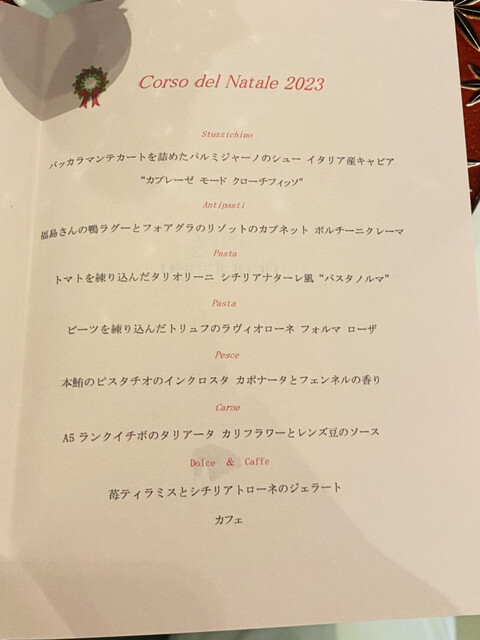 Corso del Natale 2023
Stuzzichino
バッカラマンテカートを詰めたパルミジャーノのシュー イタリア産キャビア
"カプレーゼ モード クローチフィッソ"
Antipasti
福島さんの鴨ラグーとフォアグラのリゾットのカプネット ポルチーニクレーマ
Pasta
トマトを練り込んだタリオリーニ シチリアナターレ風 "パスタノルマ"
Pasta
ビーツを練り込んだトリュフのラヴィオローネ フォルマ ローザ
Pesce
本鮪のピスタチオのインクロスタ カポナータとフェンネルの香り
Carne
A5 ランクイチボのタリアータ カリフラワーとレンズ豆のソース
Dolce & Caffe
苺ティラミスとシチリアトローネのジェラート
カフェ